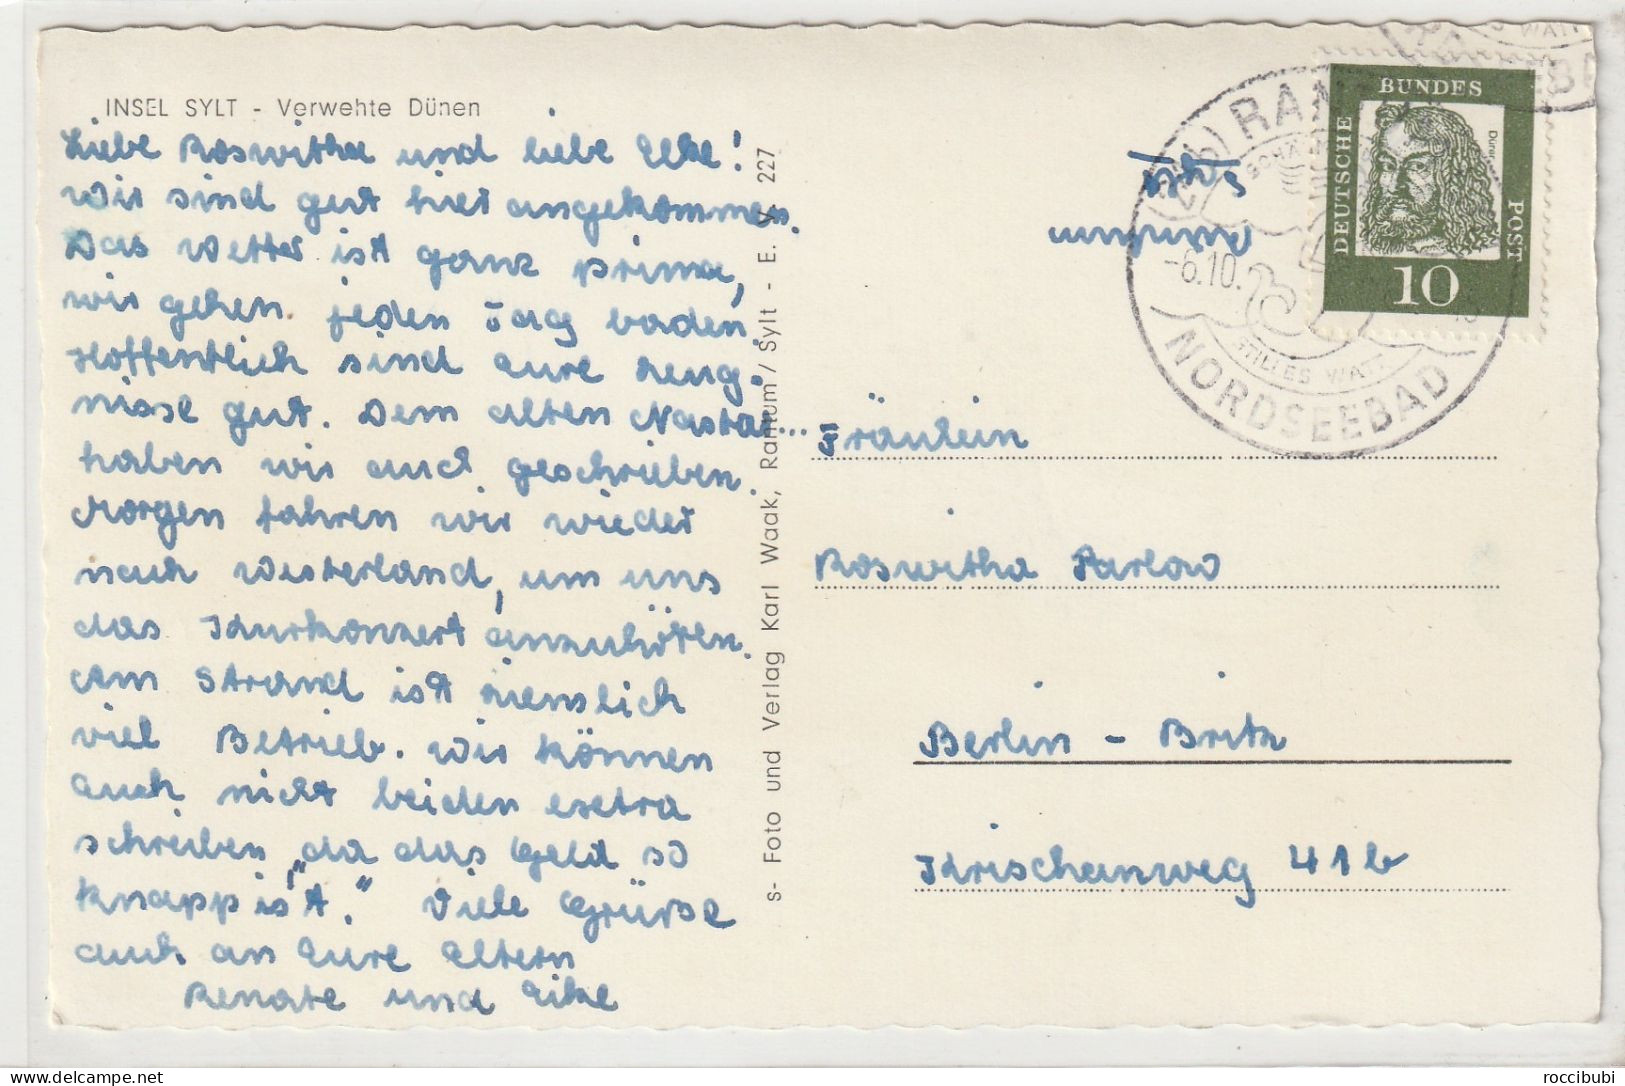 INSEL SYLT - Verwehte Dünen
Liebe Roswitha und liebe Elke!
Wir sind gut hier angekommen.
Das Wetter ist ganz prima,
wir gehen jeden Tag baden.
Hoffentlich sind eure Zeug-
nisse gut. Dem alten
haben wir auch geschrieben.
Morgen fahren wir wieder
nach Westerland, um uns
das Kurkonzert anzuhören.
Am Strand ist ziemlich
viel Betrieb. Wir können
euch nicht beiden exstra
schreiben, „da das Geld so
knapp ist." Viele Grüße
auch an Eure Eltern
Renate und Elke
s- Foto und Verlag Karl Waak, Rantum / Sylt - E. V. 227
Sylt
Rantum
NORDSEEBAD
STILLES WATT
-6.10.
DEUTSCHE
BUNDES
POST
Dürer
10
Fräulein
Roswitha Parlow
Berlin - Britz
Krischanweg 41b
roccibubi